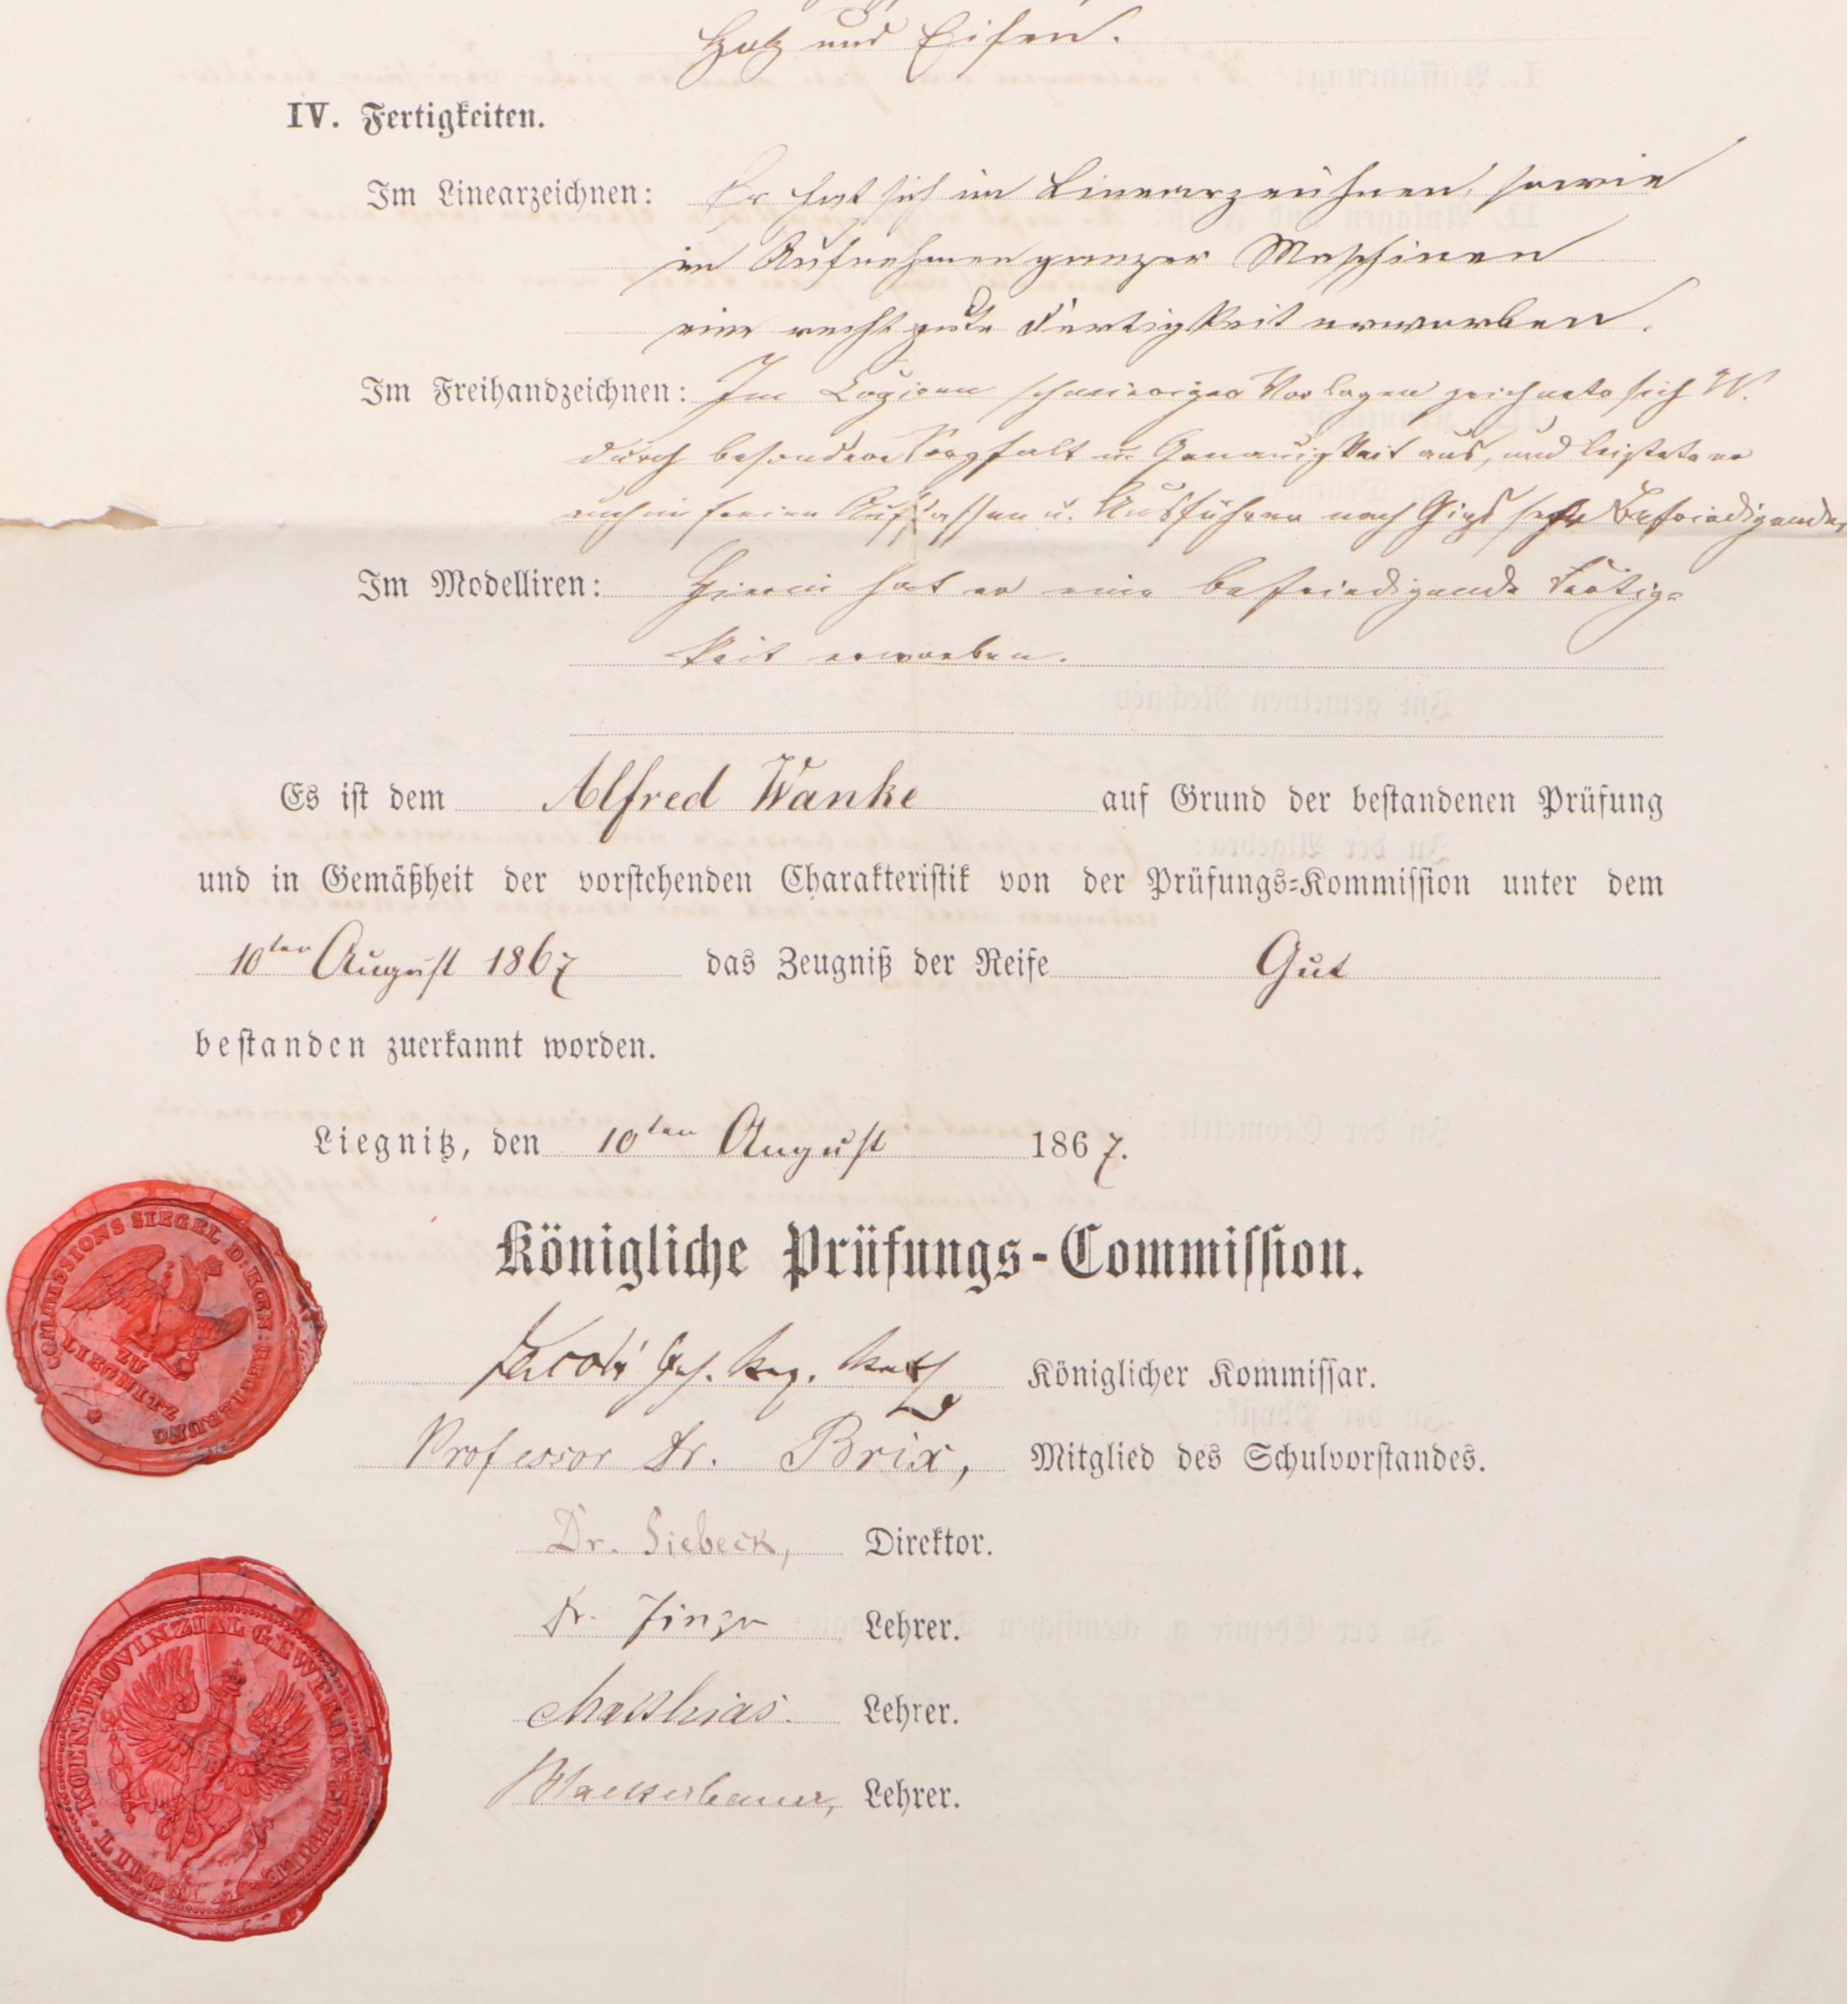 Holz und Eisen.
IV. Fertigkeiten.
Im Linearzeichnen: Er hat sich im Linearzeichnen, sowie
im Aufnehmen ganzer Maschinen
eine recht gute Fertigkeit erworben.
Im Freihandzeichnen: Im Copiren schwieriger Vorlagen zeichnete sich W.
durch besondere Sorgfalt u. Genauigkeit aus, und leistete er
auch im freien Auffassen u. Ausführen nach Gips sehr Befriedigendes
Im Modelliren: Hierin hat er eine befriedigende Fertig=
keit erworben.
Es ist dem Alfred Wanke auf Grund der bestandenen Prüfung
und in Gemäßheit der vorstehenden Charakteristik von der Prüfungs=Kommission unter dem
10ten August 1867 das Zeugniß der Reife Gut
bestanden zuerkannt worden.
Liegnitz, den 10ten August 1867.
Königliche Prüfungs-Commission.
COMMISSIONS SIEGEL D: KOEN: REGIERUNG
ZU
LIEGNITZ
Jacobi Geh. Reg. Rath Königlicher Kommissar.
Professor Dr. Brix, Mitglied des Schulvorstandes.
Dr. Siebeck, Direktor.
Dr. Lehrer.
KOEN: PROVINZIAL GEWERBE
Matthias. Lehrer.
Lehrer.